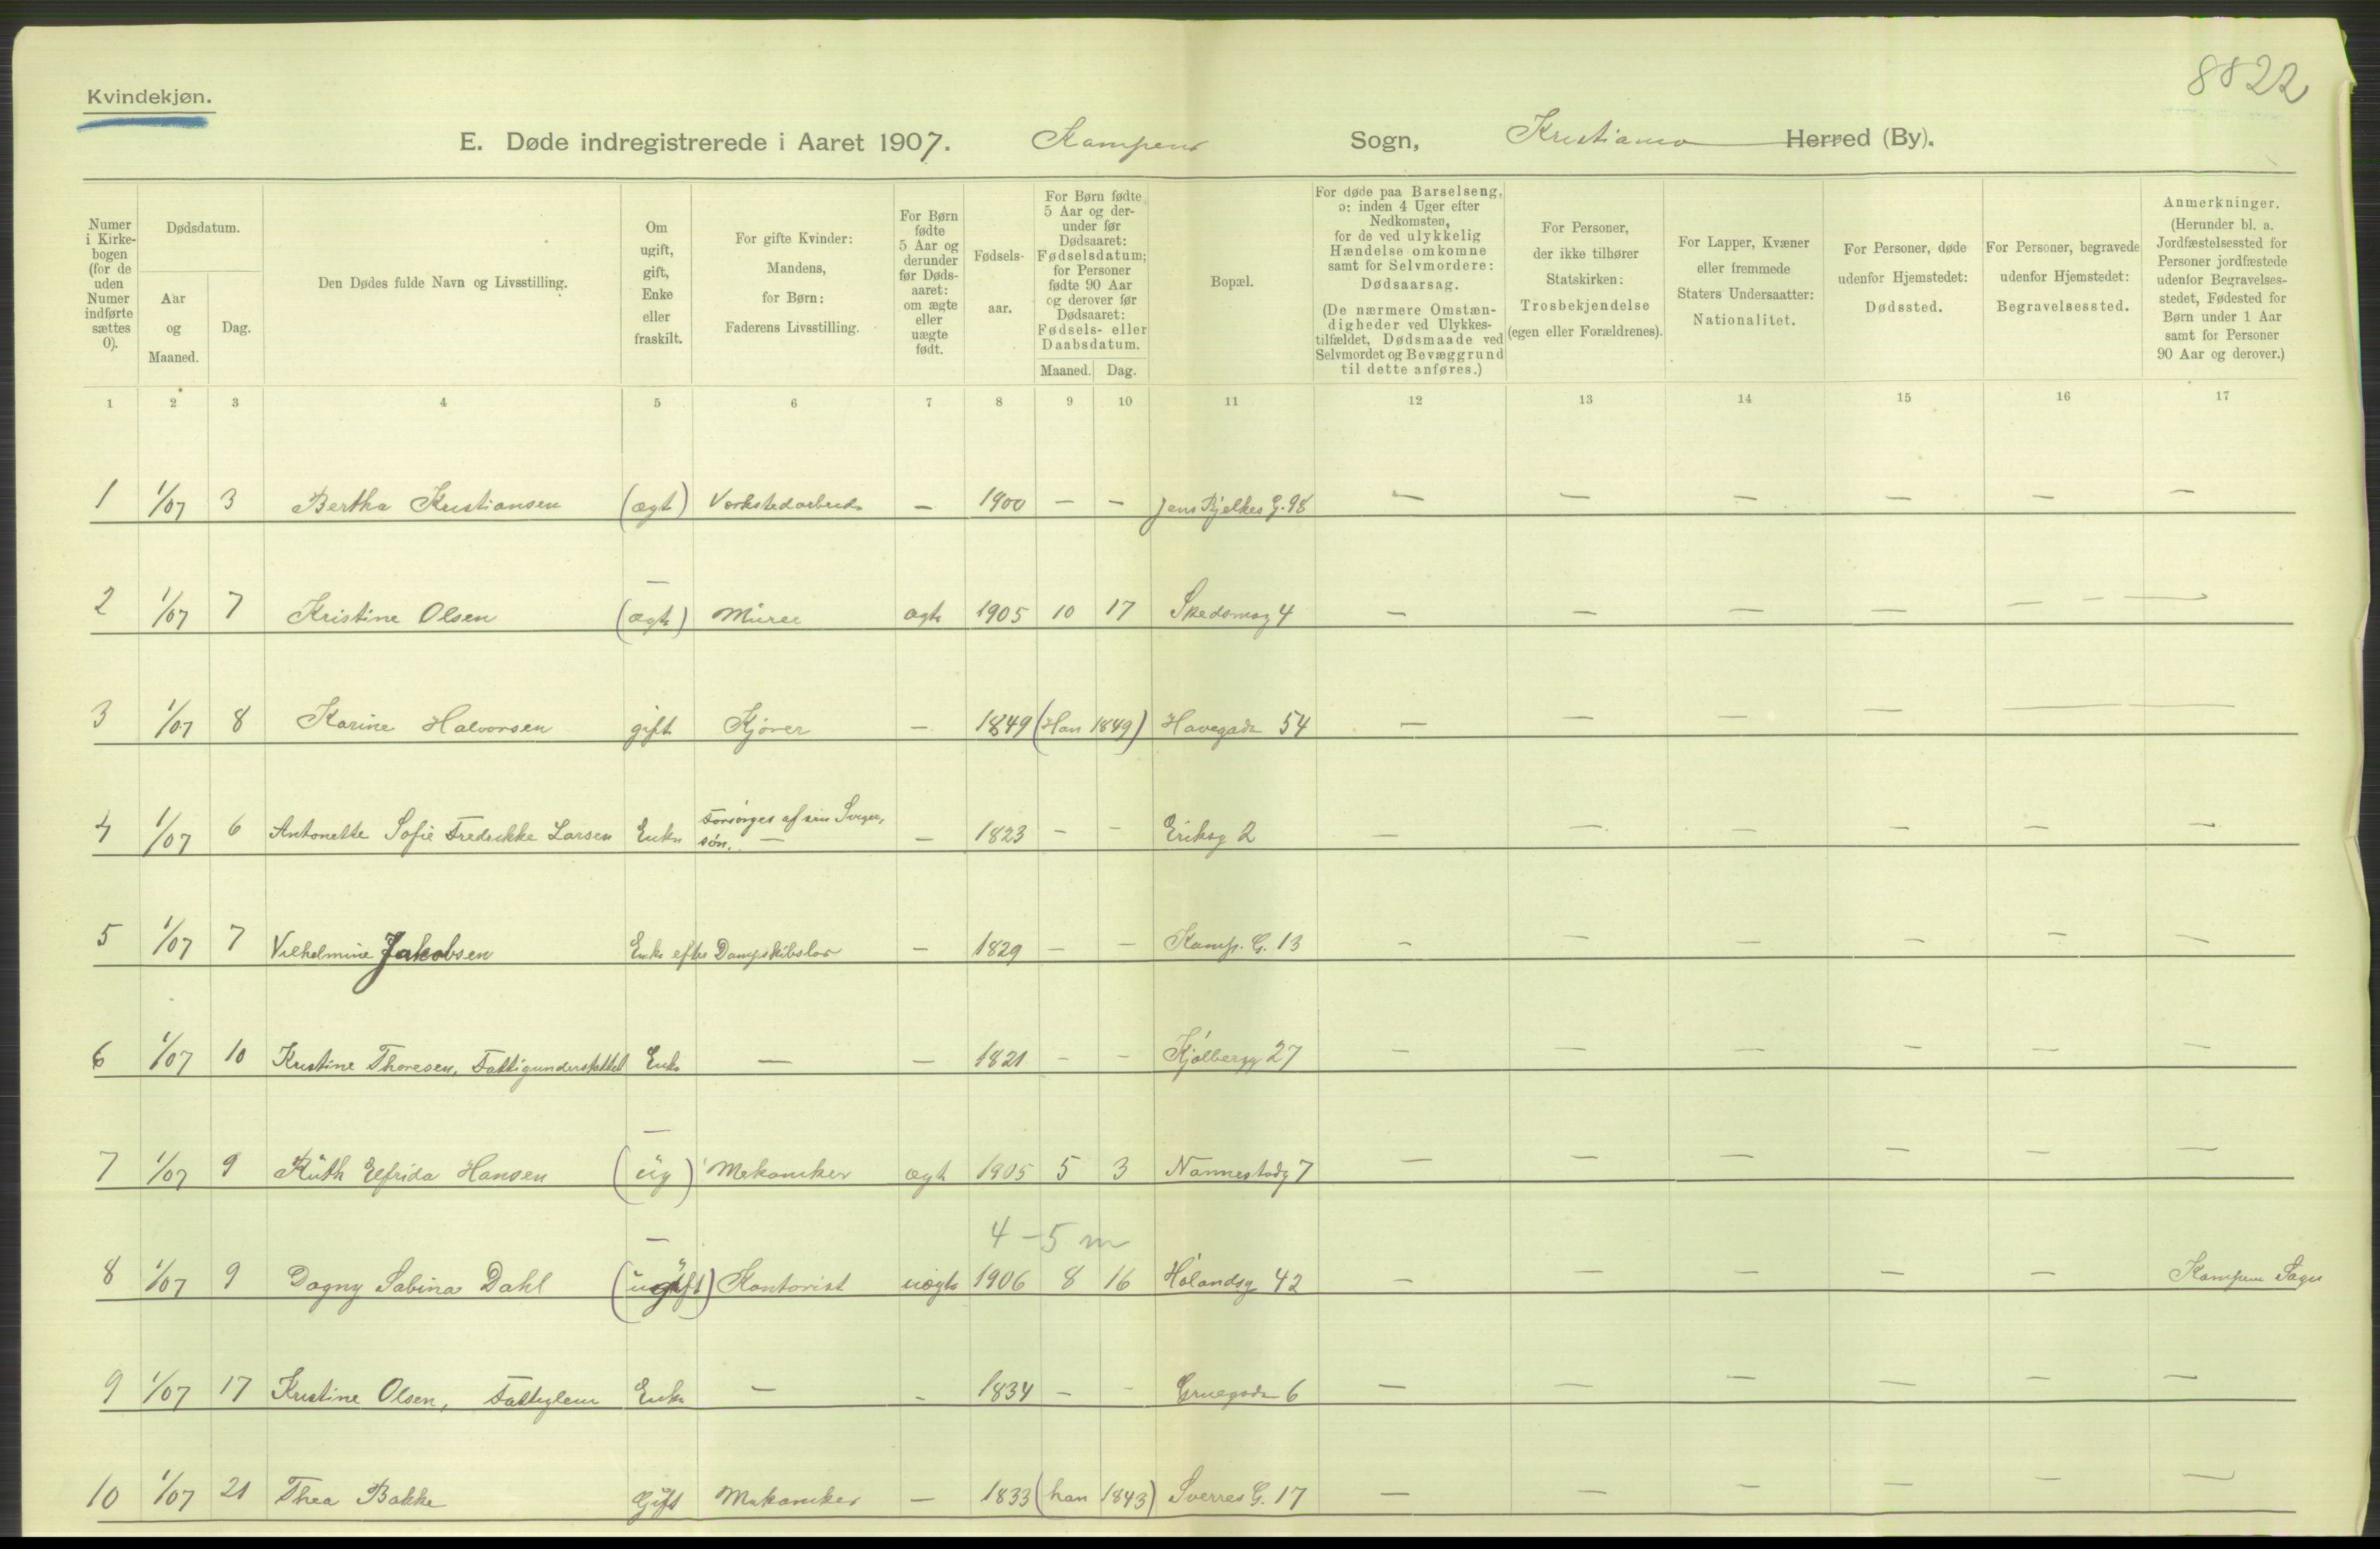 8822
Kvindekjøn.
E. Døde indregistrerede i Aaret 1907. Kampens Sogn, Kristiania Herred (By).
Numer i Kirkebogen (for de uden Numer indførte sættes 0).
Dødsdatum.
Aar og Maaned.
Dag.
Den Dødes fulde Navn og Livsstilling.
Om ugift, gift, Enke eller fraskilt.
For gifte Kvinder: Mandens, for Børn: Faderens Livsstilling.
For Børn fødte 5 Aar og derunder før Dødsaaret: om ægte eller uægte født.
Fødselsaar.
For Børn fødte 5 Aar og derunder før Dødsaaret: Fødselsdatum; for Personer fødte 90 Aar og derover før Dødsaaret: Fødsels- eller Daabsdatum.
Maaned. Dag.
Bopæl.
For døde paa Barselseng, ɔ: inden 4 Uger efter Nedkomsten, for de ved ulykkelig Hændelse omkomne samt for Selvmordere: Dødsaarsag.
(De nærmere Omstændigheder ved Ulykkestilfældet, Dødsmaade ved Selvmordet og Bevæggrund til dette anføres.)
For Personer, der ikke tilhører Statskirken: Trosbekjendelse (egen eller Forældrenes).
For Lapper, Kvæner eller fremmede Staters Undersaatter: Nationalitet.
For Personer, døde udenfor Hjemstedet: Dødssted.
For Personer, begravede udenfor Hjemstedet: Begravelsessted.
Anmerkninger. (Herunder bl. a. Jordfæstelsessted for Personer jordfæstede udenfor Begravelsesstedet, Fødested for Børn under 1 Aar samt for Personer 90 Aar og derover.)
1 2 3 4 5 6 7 8 9 10 11 12 13 14 15 16 17
1 1/07 3 Bertha Kristiansen (ægt) — 1900 — — Jens Bjelkes G. 98 — — — — — —
2 1/07 7 Kristine Olsen (ægt) Murer ægte 1905 10 17 Skedsmog 4 — — — — — —
3 1/07 8 Karine Halvorsen gift Kjører — 1849 (Han 1849) Havegade 54 — — — — — —
4 1/07 6 Antonette Sofie Fredrikke Larsen Enke Forsørges af sin Sviger-
søn. — — 1823 — — Eriksg 2 — — — — — —
5 1/07 7 Vilhelmine Jakobsen Enke efter — 1829 — — Kamp. G. 13 — — — — — —
6 1/07 10 Kristine Thoresen, Fattigunderstøttet Enke — — 1821 — — Kjølbergg 27 — — — — — —
7 1/07 9 Ruth Elfrida Hansen (ug) Mekaniker ægt 1905 5 3 Nannestadg 7 — — — — — —
4-5 m
8 1/07 9 Dagny Sabina Dahl (ugift) Kontorist uægte 1906 8 16 Hølandsg 42 — — — — — Kampen Sogn
9 1/07 17 Kristine Olsen, Fattiglem Enke — — 1834 — — Gruegade 6 — — — — — —
10 1/07 21 Thea Bakke Gift Mekaniker — 1833 (han 1843) Sverres G. 17 — — — — — —